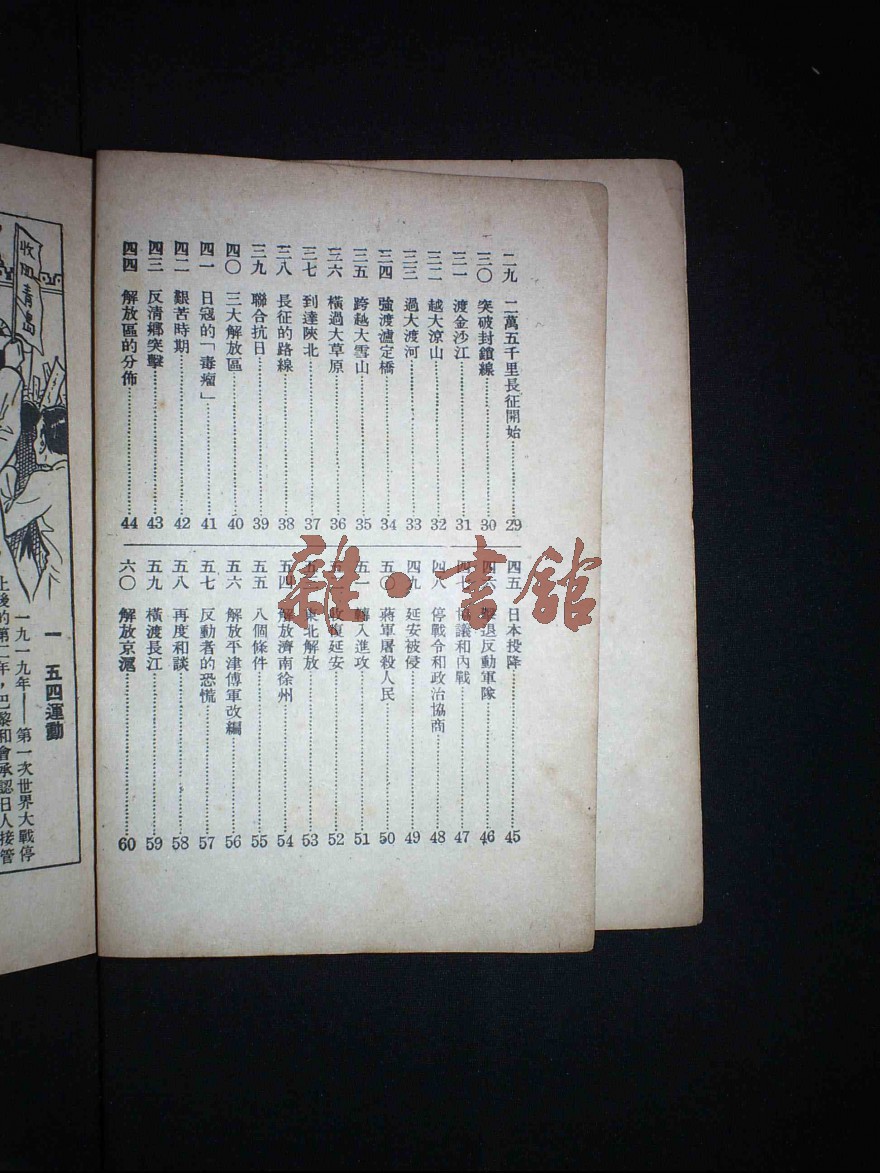 二九 二萬五千里長征開始 29
三〇 突破封鎖線 30
三一 渡金沙江 31
三二 越大涼山 32
三三 過大渡河 33
三四 強渡瀘定橋 34
三五 跨越大雪山 35
三六 橫過大草原 36
三七 到達陝北 37
三八 長征的路線 38
三九 聯合抗日 39
四〇 三大解放區 40
四一 日寇的「毒瘤」 41
四二 艱苦時期 42
四三 反清鄉突擊 43
四四 解放區的分佈 44
四五 日本投降 45
四六 擊退反動軍隊 46
四七 協議和內戰 47
四八 停戰令和政治協商 48
四九 延安被侵 49
五〇 蔣軍屠殺人民 50
五一 轉入進攻 51
五二 收復延安 52
五三 東北解放 53
五四 解放濟南徐州 54
五五 八個條件 55
五六 解放平津傅軍改編 56
五七 反動者的恐慌 57
五八 再度和談 58
五九 橫渡長江 59
六〇 解放京滬 60
雜·書館
收回青島
一 五四運動
一九一九年——第一次世界大戰停
止後的第二年，巴黎和會承認日人接管